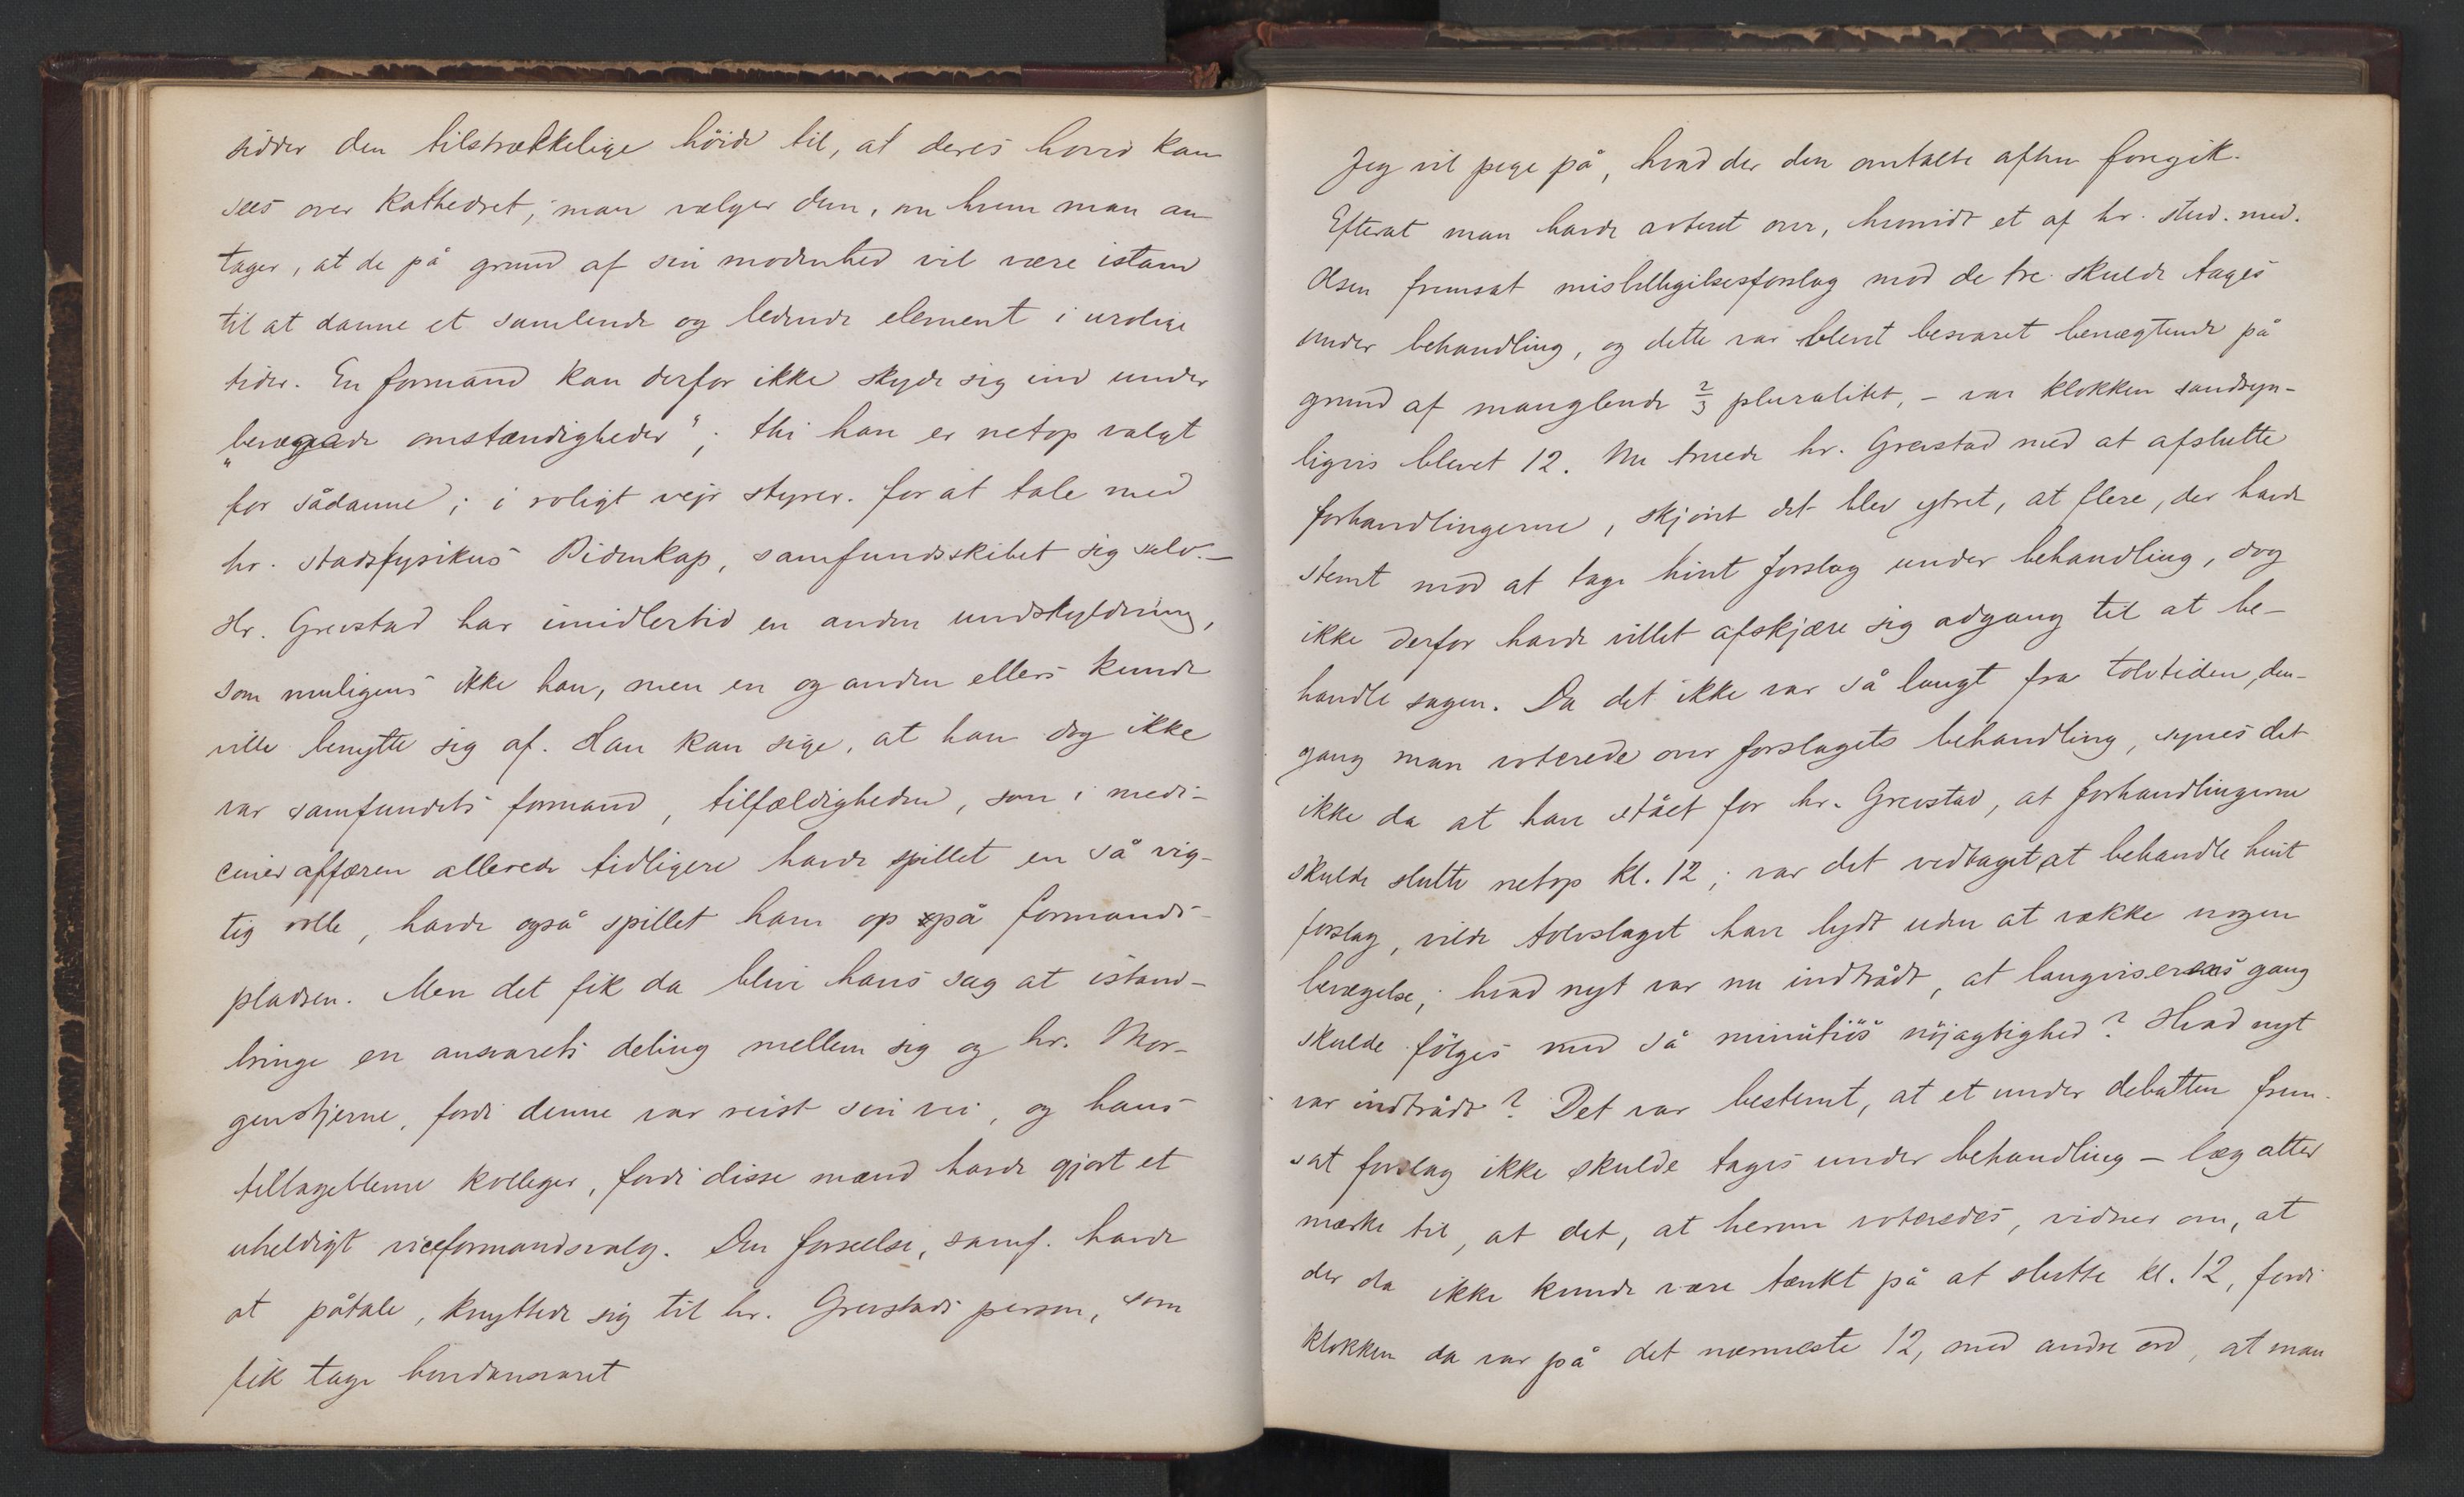 sidder den tilstrækkelige höide til, at deres hoved kan
sees over kathedret; man vælger dem, om hvem man an
tager, at de på grund af sin modenhed vil være istand
til at danne et samlende og ledende element i urolige
tider. En formand kan derfor ikke skyde sig ind under
"bevægede omstændigheder"; thi han er netop valgt
for sådanne; i roligt vejr styrer. for at tale med
hr. stadsfysikus Bidenkap, samfundsskibet sig selv. –
Hr. Grevstad har imidlertid en anden undskyldning,
som muligens ikke han, men en og anden ellers kunde
ville benytte sig af. Han kan sige, at han dog ikke
var samfundets formand, tilfældigheden, som i medi-
cineraffæren allerede tidligere havde spillet en så vig-
tig rolle, havde også spillet ham op på formands-
pladsen. Men det fik da blive hans sag at istand-
bringe en ansvarets deling mellem sig og hr. Mor-
genstjerne, fordi denne var reist sin vei, og hans
tiltageblevne kolleger, fordi disse mænd havde gjort et
uheldigt viceformandsvalg. Den forseelse, samf. havde
at påtale, knyttede sig til hr. Grevstads person, som
fik tage bondansvaret
Jeg vil pege på, hvad der den omtalte aften foregik.
Efterat man havde voteret over, hvorvidt et af hr. stud. med.
Olsen fremsat misbilligelsesforslag mod de tre skulde tages
under behandling, og dette var blevet besvaret benægtende på
grund af manglende 2/3 pluralitet, – var klokken sandsyn-
ligvis blevet 12. Nu truede hr. Grevstad med at afslutte
forhandlingerne, skjönt det blev ytret, at flere, der havde
stemt mod at tage hint forslag under behandling, dog
ikke derfor havde villet afskjære sig adgang til at be-
handle sagen. Da det ikke var så langt fra tolvtiden, den-
gang man voterede over forslagets behandling, synes det
ikke da at have stået for hr. Grevstad, at forhandlingerne
skulde slutte netop kl. 12; var det vedtaget at behandle hint
forslag, vilde tolvslaget have lydt uden at vække nogen
bevægelse; hvad nyt var nu indtrådt, at langviserens gang
skulde fölges med så minutiös nöjagtighed? Hvad nyt
var indtrådt? Det var bestemt, at et under debatten frem-
sat forslag ikke skulde tages under behandling – læg atter
mærke til, at det, at herom voteredes, vidner om, at
der da ikke kunde være tænkt på at slutte kl. 12, fordi
klokken da var på det nærmeste 12, med andre ord, at man